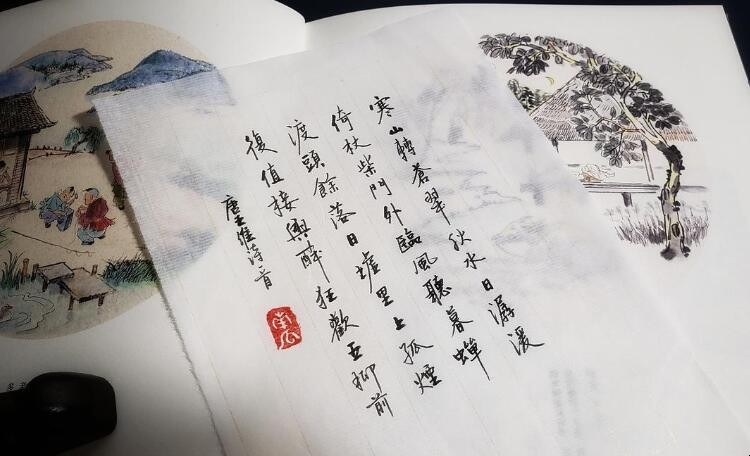 寒山轉蒼翠秋水日潺湲
倚杖柴門外臨風聽暮蟬
渡頭餘落日墟里上孤煙
復值接輿醉狂歡五柳前
唐王維詩音